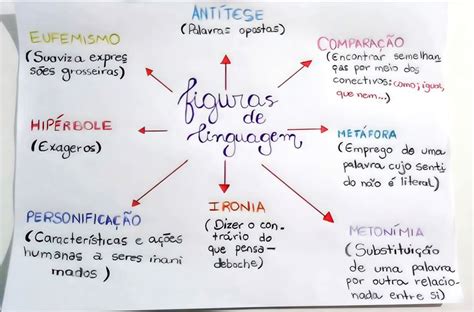 ANTÍTESE
(Palavras opostas)
EUFEMISMO
(Suaviza expres
sões grosseiras)
COMPARAÇÃO
(Encontrar semelhan
ças por meio dos
conectivos: como, igual,
que nem...)
figuras
de
linguagem
HIPÉRBOLE
(Exageros)
METÁFORA
(Emprego de uma
palavra cujo senti
do não é literal)
PERSONIFICAÇÃO
(Características e ações
humanas a seres inani
mados)
IRONIA
(Dizer o con-
trário do
que pensa-
deboche)
METONÍMIA
(Substituição
de uma palavra
por outra relacio
nada entre si)